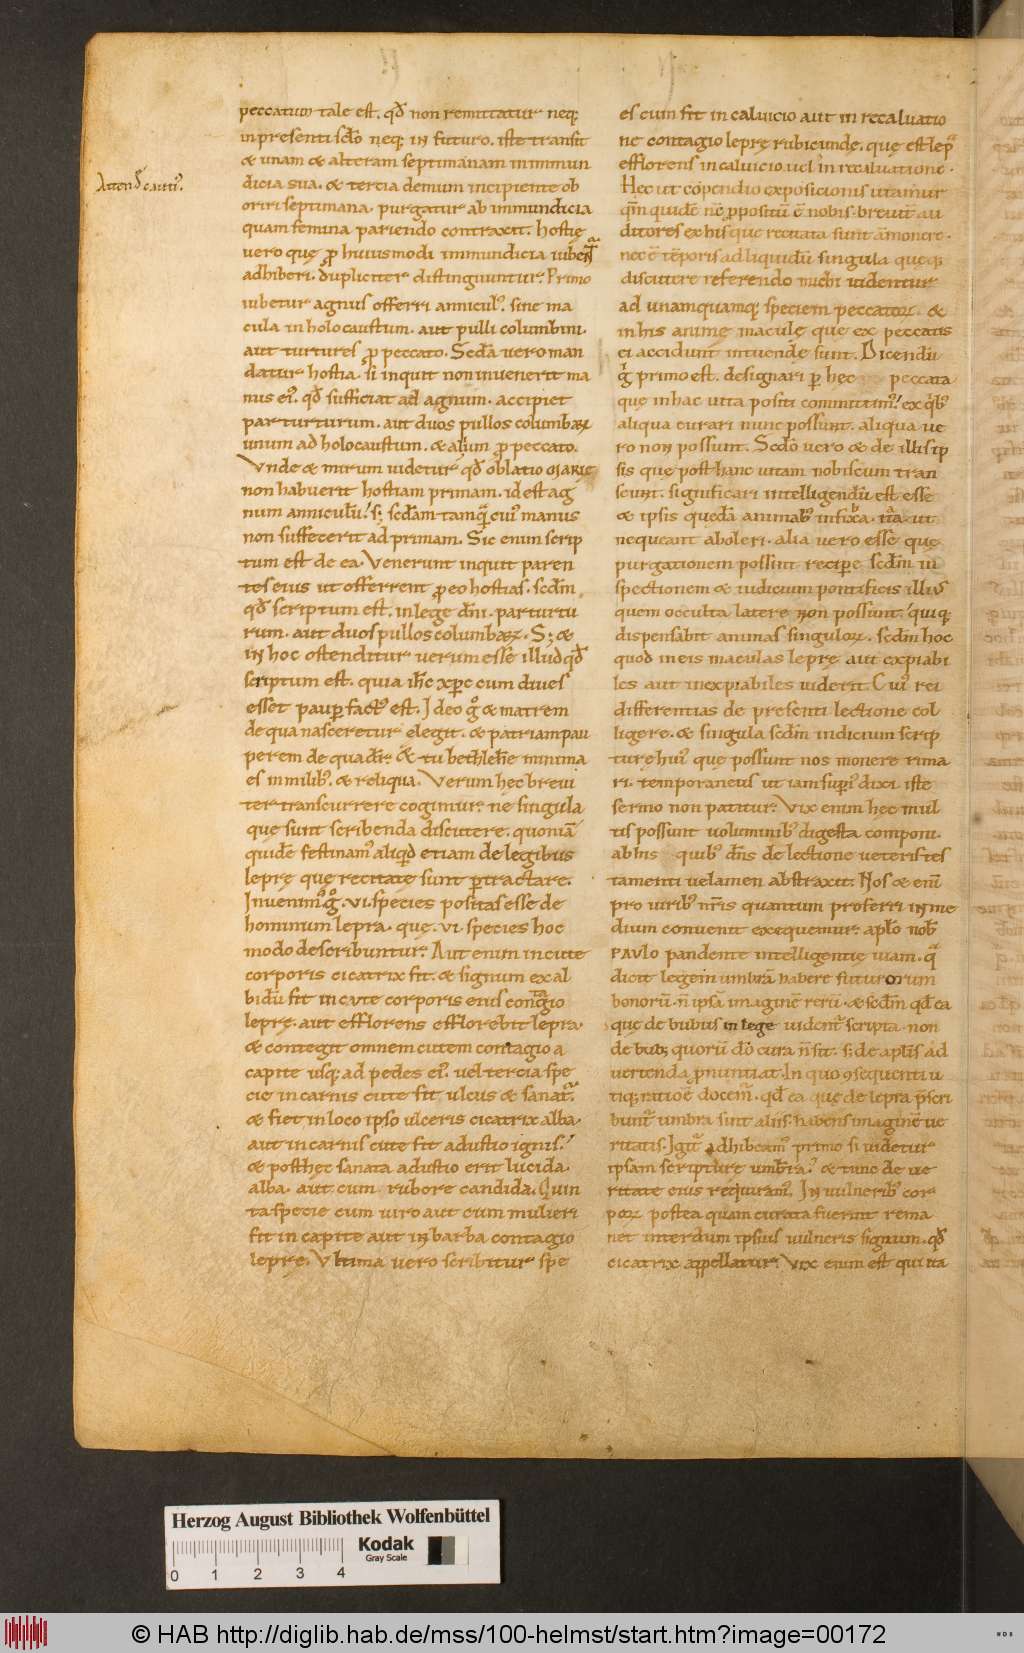 Atten[de] cauti[us].
peccatum tale est. qđ non remittatur neq;
in presenti sc̄lo neq; in futuro. iste transit
& unam & alteram septimanam in immun
dicia sua. & tercia demum incipiente ob
oriri septimana. purgatur ab immundicia
quam femina pariendo contraxit. hostię
uero quę ꝓ huiusmodi immundicia iubent᷑
adhiberi. dupliciter distinguuntur. Primo
iubetur agnus offerri annicul᷒. sine ma
cula in holocaustum. aut pulli columbini.
aut turtures ꝓ peccato. Secd̄a uero man
datur hostia. si inquit non inuenerit ma
nus ei᷒. qđ sufficiat ad agnum. accipiet
par turturum. aut duos pullos columbaꝝ
unum ad holocaustum. & alium ꝓ peccato.
Vnde & mirum uidetur qđ oblatio MARIĘ
non habuerit hostiam primam. id est ag
num anniculū. s; secd̄am tamquā cui᷒ manus
non suffecerit ad primam. Sic enim scrip
tum est de ea. Venerunt inquit paren
tes eius ut offerrent ꝓ eo hostias. secd̄m
qđ scriptum est. in lege dn̄i. par turtu
rum. aut duos pullos columbaꝝ. S; &
in hoc ostenditur uerum esse illud qđ
scriptum est. quia ih̄c xp̄c cum diues
esset paup̲ fact᷒ est. Ideo gͦ & matrem
de qua nasceretur elegit. & patriam pau
perem de qua dr̄. & tu bethleh̄e minima
es in milib᷒. & reliqua. Verum hęc breui
ter transcurrere cogimur. ne singula
quę sunt scribenda discutere. quoniā
quidē festinam᷒ aliqđ etiam de legibus
leprę quę recitatę sunt ꝑtractare.
Inuenim᷒ gͦ. vi. species positas esse de
hominum lepra. quę. vi. species hoc
modo describuntur. Aut enim in cute
corporis cicatrix fit. & signum ex al
bidū fit in cute corporis eius contagio
leprę. aut efflorens efflorebit lepra.
& contegit omnem cutem contagio a
capite usq; ad pedes ei᷒. uel tercia spe
cie in carnis cute fit ulcus & sanat᷑.
& fiet in loco ipso ulceris cicatrix alba.
aut in carnis cute fit adustio ignis.
& post hęc sanata adustio erit lucida.
alba. aut cum rubore candida. Quin
ta specie cum uiro aut cum mulieri
fit in capite aut in barba contagio
leprę. Vltima uero scribitur spe
es cum fit in caluicio aut in recaluatio
ne contagio leprę rubicundę. quę est lepra
efflorens in caluicio uel in recaluatione.
Hęc ut cōpendio exposicionis utamur
qm̄ quidē nc̄ ꝓpositū ē nobis breuit᷑ au
ditores ex his que recitata sunt āmonere.
nec ē tēporis ad liquidū singula queq;
discutere referendo michi uidentur
ad unamquamq; speciem peccatoꝝ. &
in his animę maculę quę ex peccatis
ei accidunt intuendę sunt. Dicendū
gͦ primo est. designari ꝑ hęc peccata
quę in hac uita positi committim᷒. ex qͥb᷒
aliqua curari nunc possunt. aliqua ue
ro non possunt. Secd̄o uero & de illis ip
sis quę post hanc uitam nobiscum tran
seunt. significari intelligendū est esse
& ipsis quędā animab᷒ infixa. ita ut
nequeant aboleri. alia uero esse quę
purgationem possint recipere secd̄m in
spectionem & iudicium pontificis illius
quem occulta latere non possunt. quiq;
dispensabit animas singuloꝝ. secd̄m hoc
quod in eis maculas leprę aut expiabi
les aut inexpiabiles uiderit. Cui᷒ rei
differentias de presenti lectione col
ligere. & singula secd̄m indicium scrip
turę hui᷒ quę possunt nos monere rima
ri. temporaneus ut iam sup̲i᷒ dixi. iste
sermo non patitur. Vix enim hęc mul
tis possunt uoluminib᷒ digesta componi.
ab his quib᷒ dn̄s de lectione ueteris tes
tamenti uelamen abstraxit. Nos & enī
pro uirib᷒ nr̄is quantum proferri in me
dium conuenit exequemur. aplo nob̄
PAVLO pandente intelligentię uiam. qͣ
dicit legem umbrā habere futurorum
bonorū. n̄ ipsā imaginē rerū. & secd̄m qđ ea
que de bubus in lege uident᷑ scripta non
de bub; quorū dō cura n̄ sit. s; de aplis ad
uertenda ꝓnuntiat. In quo ꝯsequenti u
tiq; ratiōe docem᷑. qđ ea quę de lepra p̄scri
bunt᷑ umbra sunt aliis habens imaginē ue
ritatis. Igit᷑ adhibeam᷒ primo si uidetur
ipsam scripturę umbrā. & tunc de ue
ritate eius requiram᷒. In uulnerib᷒ cor
poꝝ postea quam curata fuerint rema
net interdum ipsius uulneris signum. qđ
cicatrix appellatur. Vix enim est qui ita
Herzog August Bibliothek Wolfenbüttel
Kodak
Gray Scale
0 1 2 3 4
© HAB http://diglib.hab.de/mss/100-helmst/start.htm?image=00172